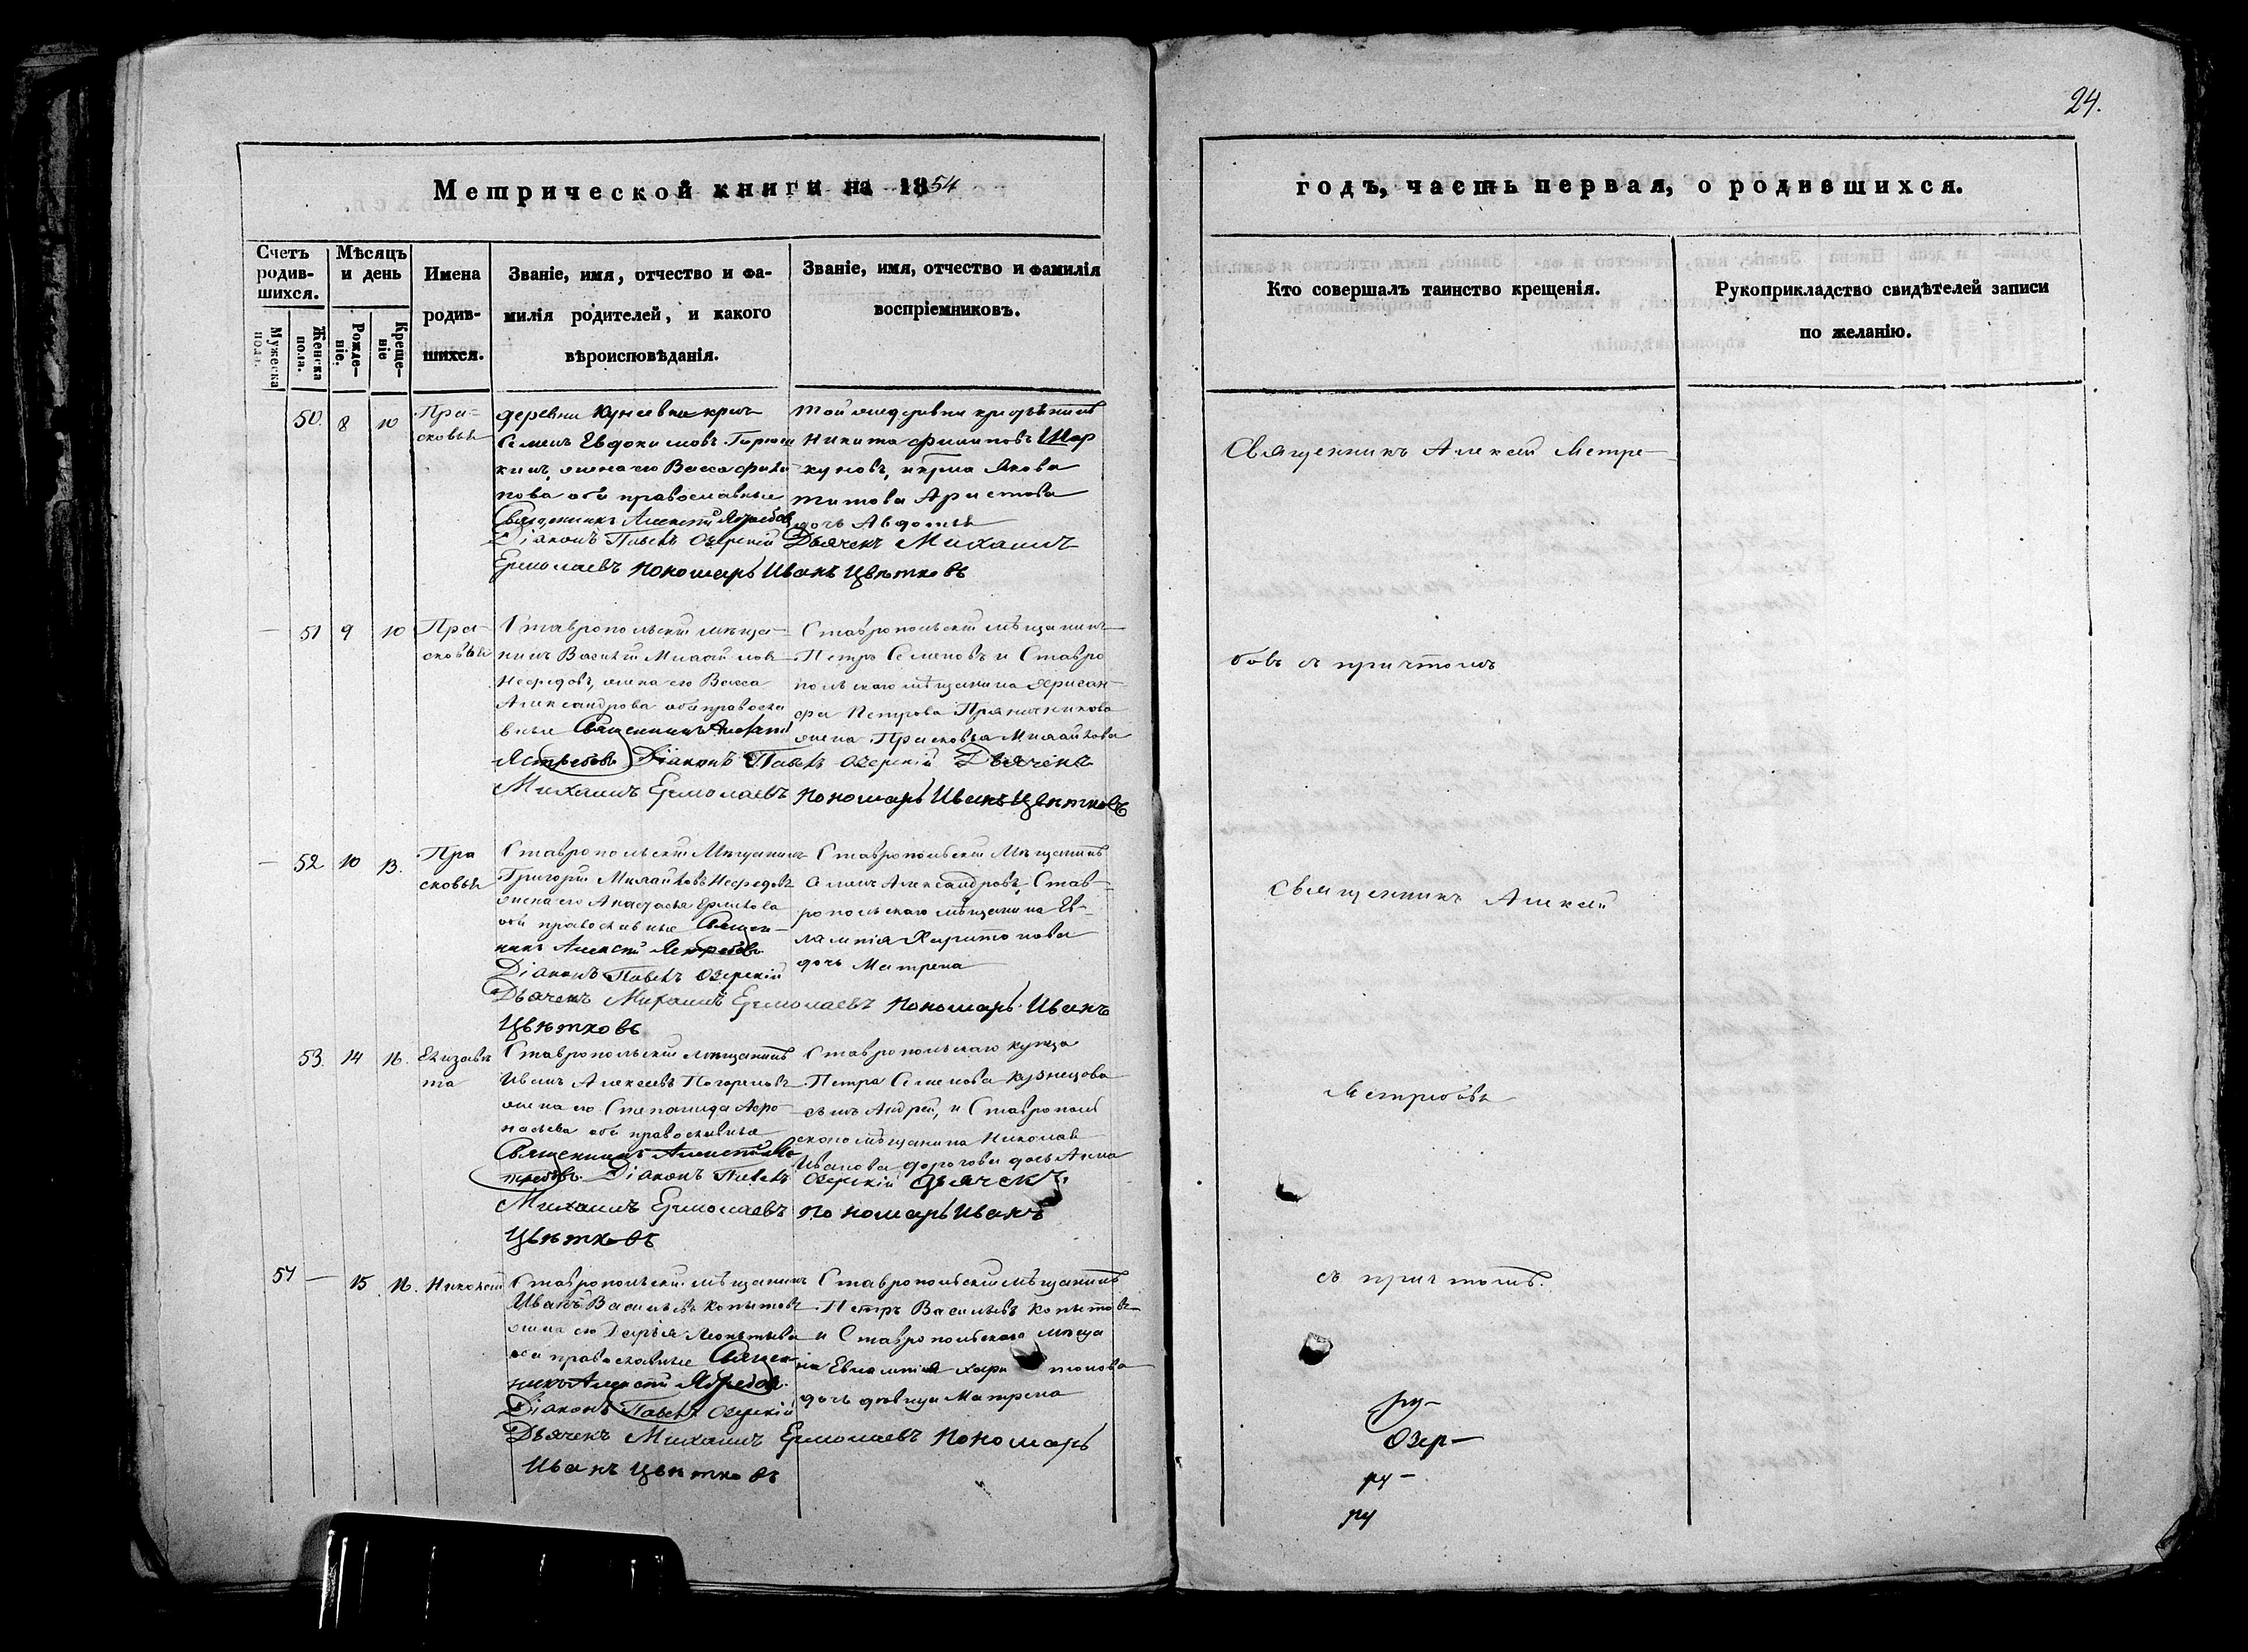 24.
Метрической книги на 1854
годъ, часть первая, о родившихся.
Счетъ родив-
шихся.
Мужеска пола.
Женска пола.
Мѣсяцъ и день
Рожде-
ніе.
Креще-
ніе
Имена
родив-
шихся.
Званіе, имя, отчество и фа-
милія родителей, и какого
вѣроисповѣданія.
Званіе, имя, отчество и фамилія
воспріемниковъ.
Кто совершалъ таинство крещенія.
Рукоприкладство свидѣтелей записи
по желанію.
50. 8 10
Пра-
сковья
деревни Кунеевки крест
Семенъ Евдокимовъ
жена его Васса Фили
пова оба православные
Священникъ Алексѣй Ястребовъ
Діаконъ Павелъ Озерскій Дьячекъ Михаилъ
Ермолаевъ пономарь Иванъ Цвѣтковъ
той же деревни крестьянинъ
Никита Филиповъ Шор
куновъ, и Якова
Титова Аристова
дочь Авдотья
Священникъ Алексѣй Ястре-
— 51 9 10
Пра-
сковья
Ставропольскій мѣща-
нинъ Василій Михайлов
Нефедовъ, жена его Васса
Александрова оба правосла
вные Священникъ Алексѣй
Ястребовъ Діаконъ Павелъ Озерскій Дьячекъ
Михаилъ Ермолаевъ пономарь Иванъ Цвѣтковъ
Ставропольскій мѣщанинъ
Петръ Семеновъ и Ставро
польскаго мѣщанина Хрисан-
фа Петрова Пряничникова
жена Прасковья Михайлова
бовъ съ причтомъ
— 52 10 13.
Пра
сковья
Ставропольскій Мѣщанинъ
Григорій Михайловъ Нефедовъ
жена его Анастасья Ермилова
оба православные Священ-
никъ Алексѣй Ястребовъ
Діаконъ Павелъ Озерскій
Дьячекъ Михаилъ Ермолаевъ пономарь Иванъ
Цвѣтковъ
Ставропольскій Мѣщанинъ
Семенъ Александровъ, Став-
ропольскаго мѣщанина Ев-
лампія Харитонова
дочь Матрена
священникъ Алексѣй
53. 14 16.
Елизаве
та
Ставропольскій мѣщанинъ
Иванъ Алексеевъ Погореловъ
жена его Степанида Афо-
насьева оба православные
Священникъ Алексѣй Яс
требовъ. Діаконъ Павелъ Озерскій Дьячекъ
Михаилъ Ермолаевъ пономарь Иванъ
Цвѣтковъ
Ставропольскаго купца
Петра Семенова Кузнецова
сынъ Андрей, и Ставрополь
скаго мѣщанина Николая
Иванова Дорогова дочь Анна
Ястребовъ
54 — 15 16.
Николай
Ставропольскій мѣщанинъ
Иванъ Васильевъ Копытовъ
жена его Дарья Леонтьева
оба православные Священ
никъ Алексѣй Ястребовъ.
Діаконъ Павелъ Озерскій
Дьячекъ Михаилъ Ермолаевъ пономарь
Иванъ Цвѣтковъ
Ставропольскій мѣщанинъ
Петръ Васильевъ Копытовъ
и Ставропольскаго мѣща
на Евлампія Харитонова
дочь дѣвица Матрена
съ причтомъ.
ру-
Озер-
ру-
ру